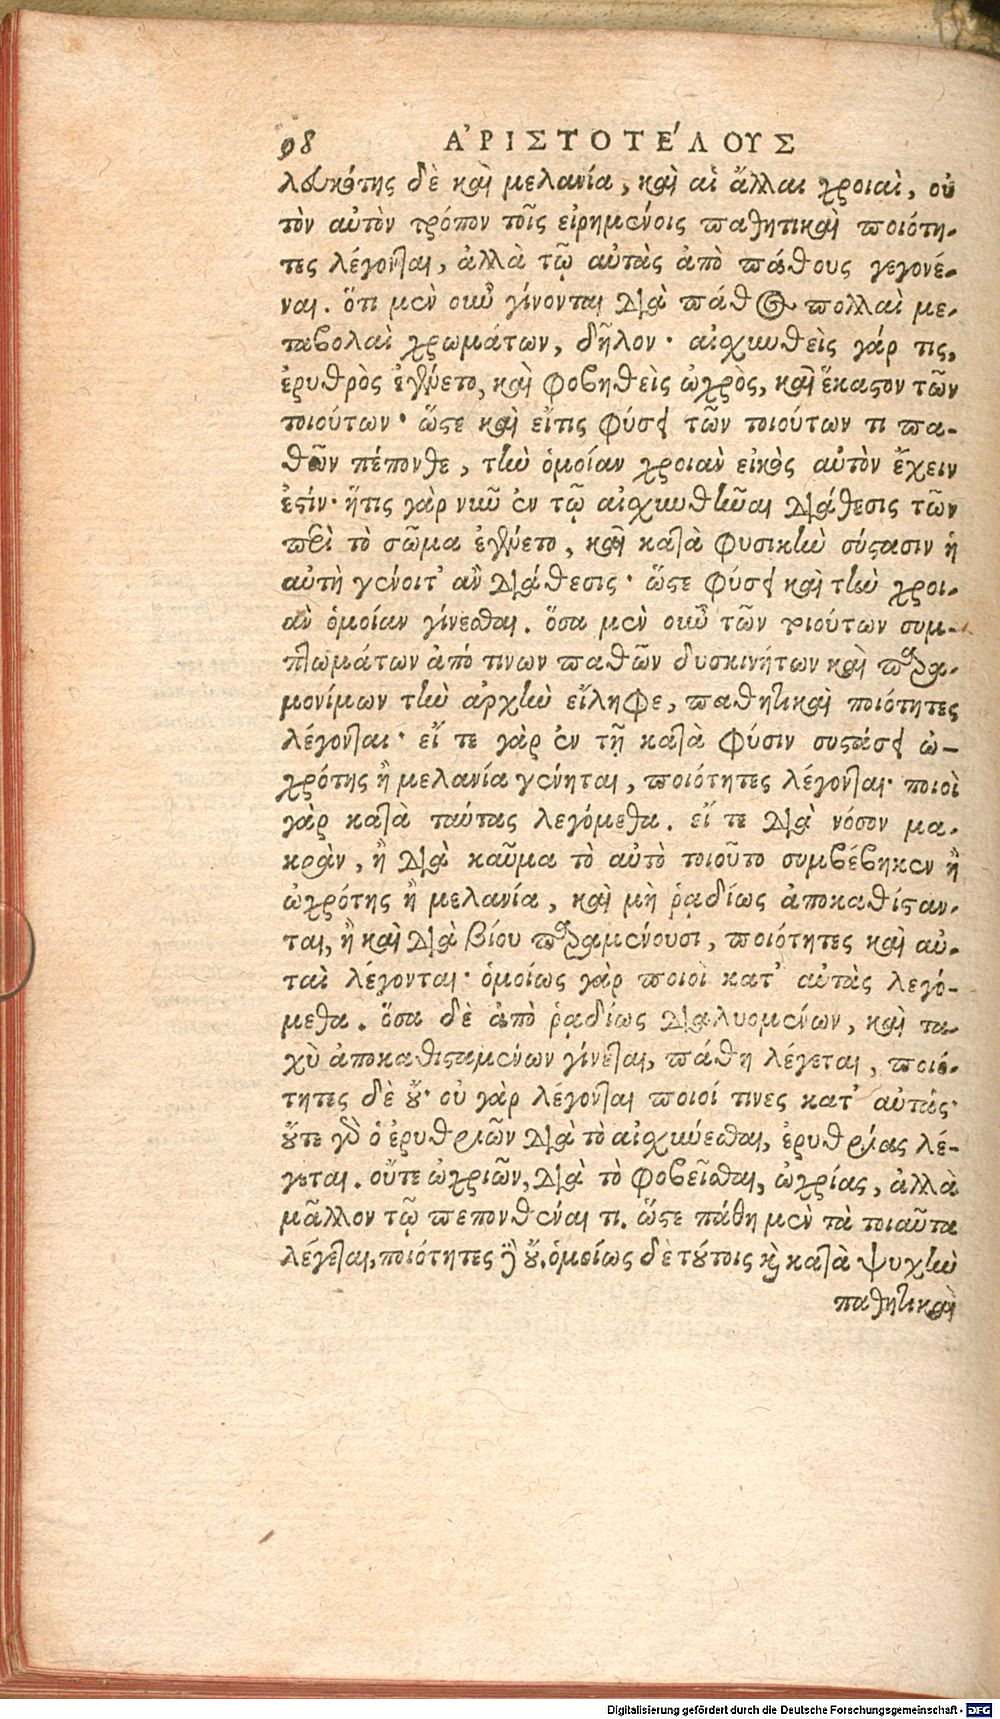 98 ἈΡΙΣΤΟΤΈΛΟΥΣ
λευκότης δὲ καὶ μελανία, καὶ αἱ ἄλλαι χροιαὶ, οὐ
τὸν αὐτὸν τρόπον τοῖς εἰρημένοις παθητικαὶ ποιότη-
τες λέγονται, ἀλλὰ τῷ αὐτὰς ἀπὸ πάθους γεγονέ-
ναι. ὅτι μὲν οὖν γίνονται διὰ πάθος πολλαὶ με-
ταβολαὶ χρωμάτων, δῆλον· αἰσχυνθεὶς γάρ τις,
ἐρυθρὸς ἐγένετο, καὶ φοβηθεὶς ὠχρὸς, καὶ ἕκαστον τῶν
τοιούτων· ὥστε καὶ εἴτις φύσει τῶν τοιούτων τι πα-
θῶν πέπονθε, τὴν ὁμοίαν χροιὰν εἰκὸς αὐτὸν ἔχειν
ἐστίν· ἥτις γὰρ νῦν ἐν τῷ αἰσχυνθῆναι διάθεσις τῶν
περὶ τὸ σῶμα ἐγένετο, καὶ κατὰ φυσικὴν σύστασιν ἡ
αὐτὴ γένοιτ' ἂν διάθεσις· ὥστε φύσει καὶ τὴν χροι-
ὰν ὁμοίαν γίνεσθαι. ὅσα μὲν οὖν τῶν τοιούτων συμ-
πτωμάτων ἀπό τινων παθῶν δυσκινήτων καὶ παρα-
μονίμων τὴν ἀρχὴν εἴληφε, παθητικαὶ ποιότητες
λέγονται· εἴ τε γὰρ ἐν τῇ κατὰ φύσιν συστάσει ὠ-
χρότης ἢ μελανία γένηται, ποιότητες λέγονται· ποιοὶ
γὰρ κατὰ ταύτας λεγόμεθα. εἴ τε διὰ νόσον μα-
κρὰν, ἢ διὰ καῦμα τὸ αὐτὸ τοιοῦτο συμβέβηκεν ἢ
ὠχρότης ἢ μελανία, καὶ μὴ ῥαδίως ἀποκαθίσταν-
ται, ἢ καὶ διὰ βίου παραμένουσι, ποιότητες καὶ αὐ-
ταὶ λέγονται· ὁμοίως γὰρ ποιοὶ κατ' αὐτὰς λεγό-
μεθα. ὅσα δὲ ἀπὸ ῥαδίως διαλυομένων, καὶ τα-
χὺ ἀποκαθισταμένων γίνεται, πάθη λέγεται, ποιό-
τητες δὲ οὔ· οὐ γὰρ λέγονται ποιοί τινες κατ' αὐτάς·
οὔτε γὰρ ὁ ἐρυθριῶν διὰ τὸ αἰσχύνεσθαι, ἐρυθρίας λέ-
γεται. οὔτε ὠχριῶν, διὰ τὸ φοβεῖσθαι, ὠχρίας, ἀλλὰ
μᾶλλον τῷ πεπονθέναι τι. ὥστε πάθη μὲν τὰ τοιαῦτα
λέγεται, ποιότητες δὲ οὔ. ὁμοίως δὲ τούτοις καὶ κατὰ ψυχὴν
παθητικαὶ
Digitalisierung gefördert durch die Deutsche Forschungsgemeinschaft - DFG